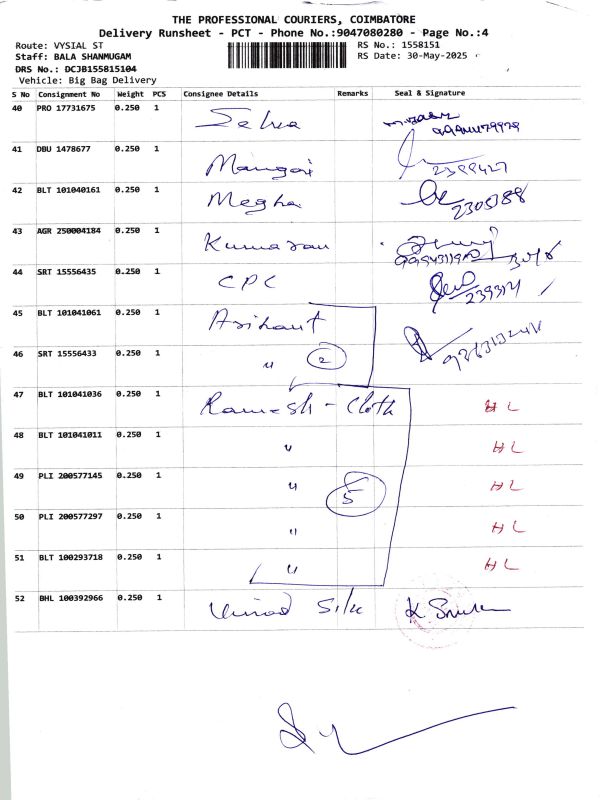 THE PROFESSIONAL COURIERS, COIMBATORE
Delivery Runsheet - PCT - Phone No.:9047080280 - Page No.:4
Route: VYSIAL ST
RS No.: 1558151
Staff: BALA SHANMUGAM
RS Date: 30-May-2025
DRS No.: DCJB155815104
Vehicle: Big Bag Delivery
S No Consignment No Weight PCS Consignee Details Remarks Seal & Signature
40 PRO 17731675 0.250 1 Selva
41 DBU 1478677 0.250 1 Mangai 2399427
42 BLT 101040161 0.250 1 Megha 2305188
43 AGR 250004184 0.250 1 Kumaran
44 SRT 15556435 0.250 1 CPC
45 BLT 101041061 0.250 1 Arihant
46 SRT 15556433 0.250 1 " 2
47 BLT 101041036 0.250 1 Ramesh - Cloth HL
48 BLT 101041011 0.250 1 " HL
49 PLI 200577145 0.250 1 " 5 HL
50 PLI 200577297 0.250 1 " HL
51 BLT 100293718 0.250 1 " HL
52 BHL 100392966 0.250 1 Silk